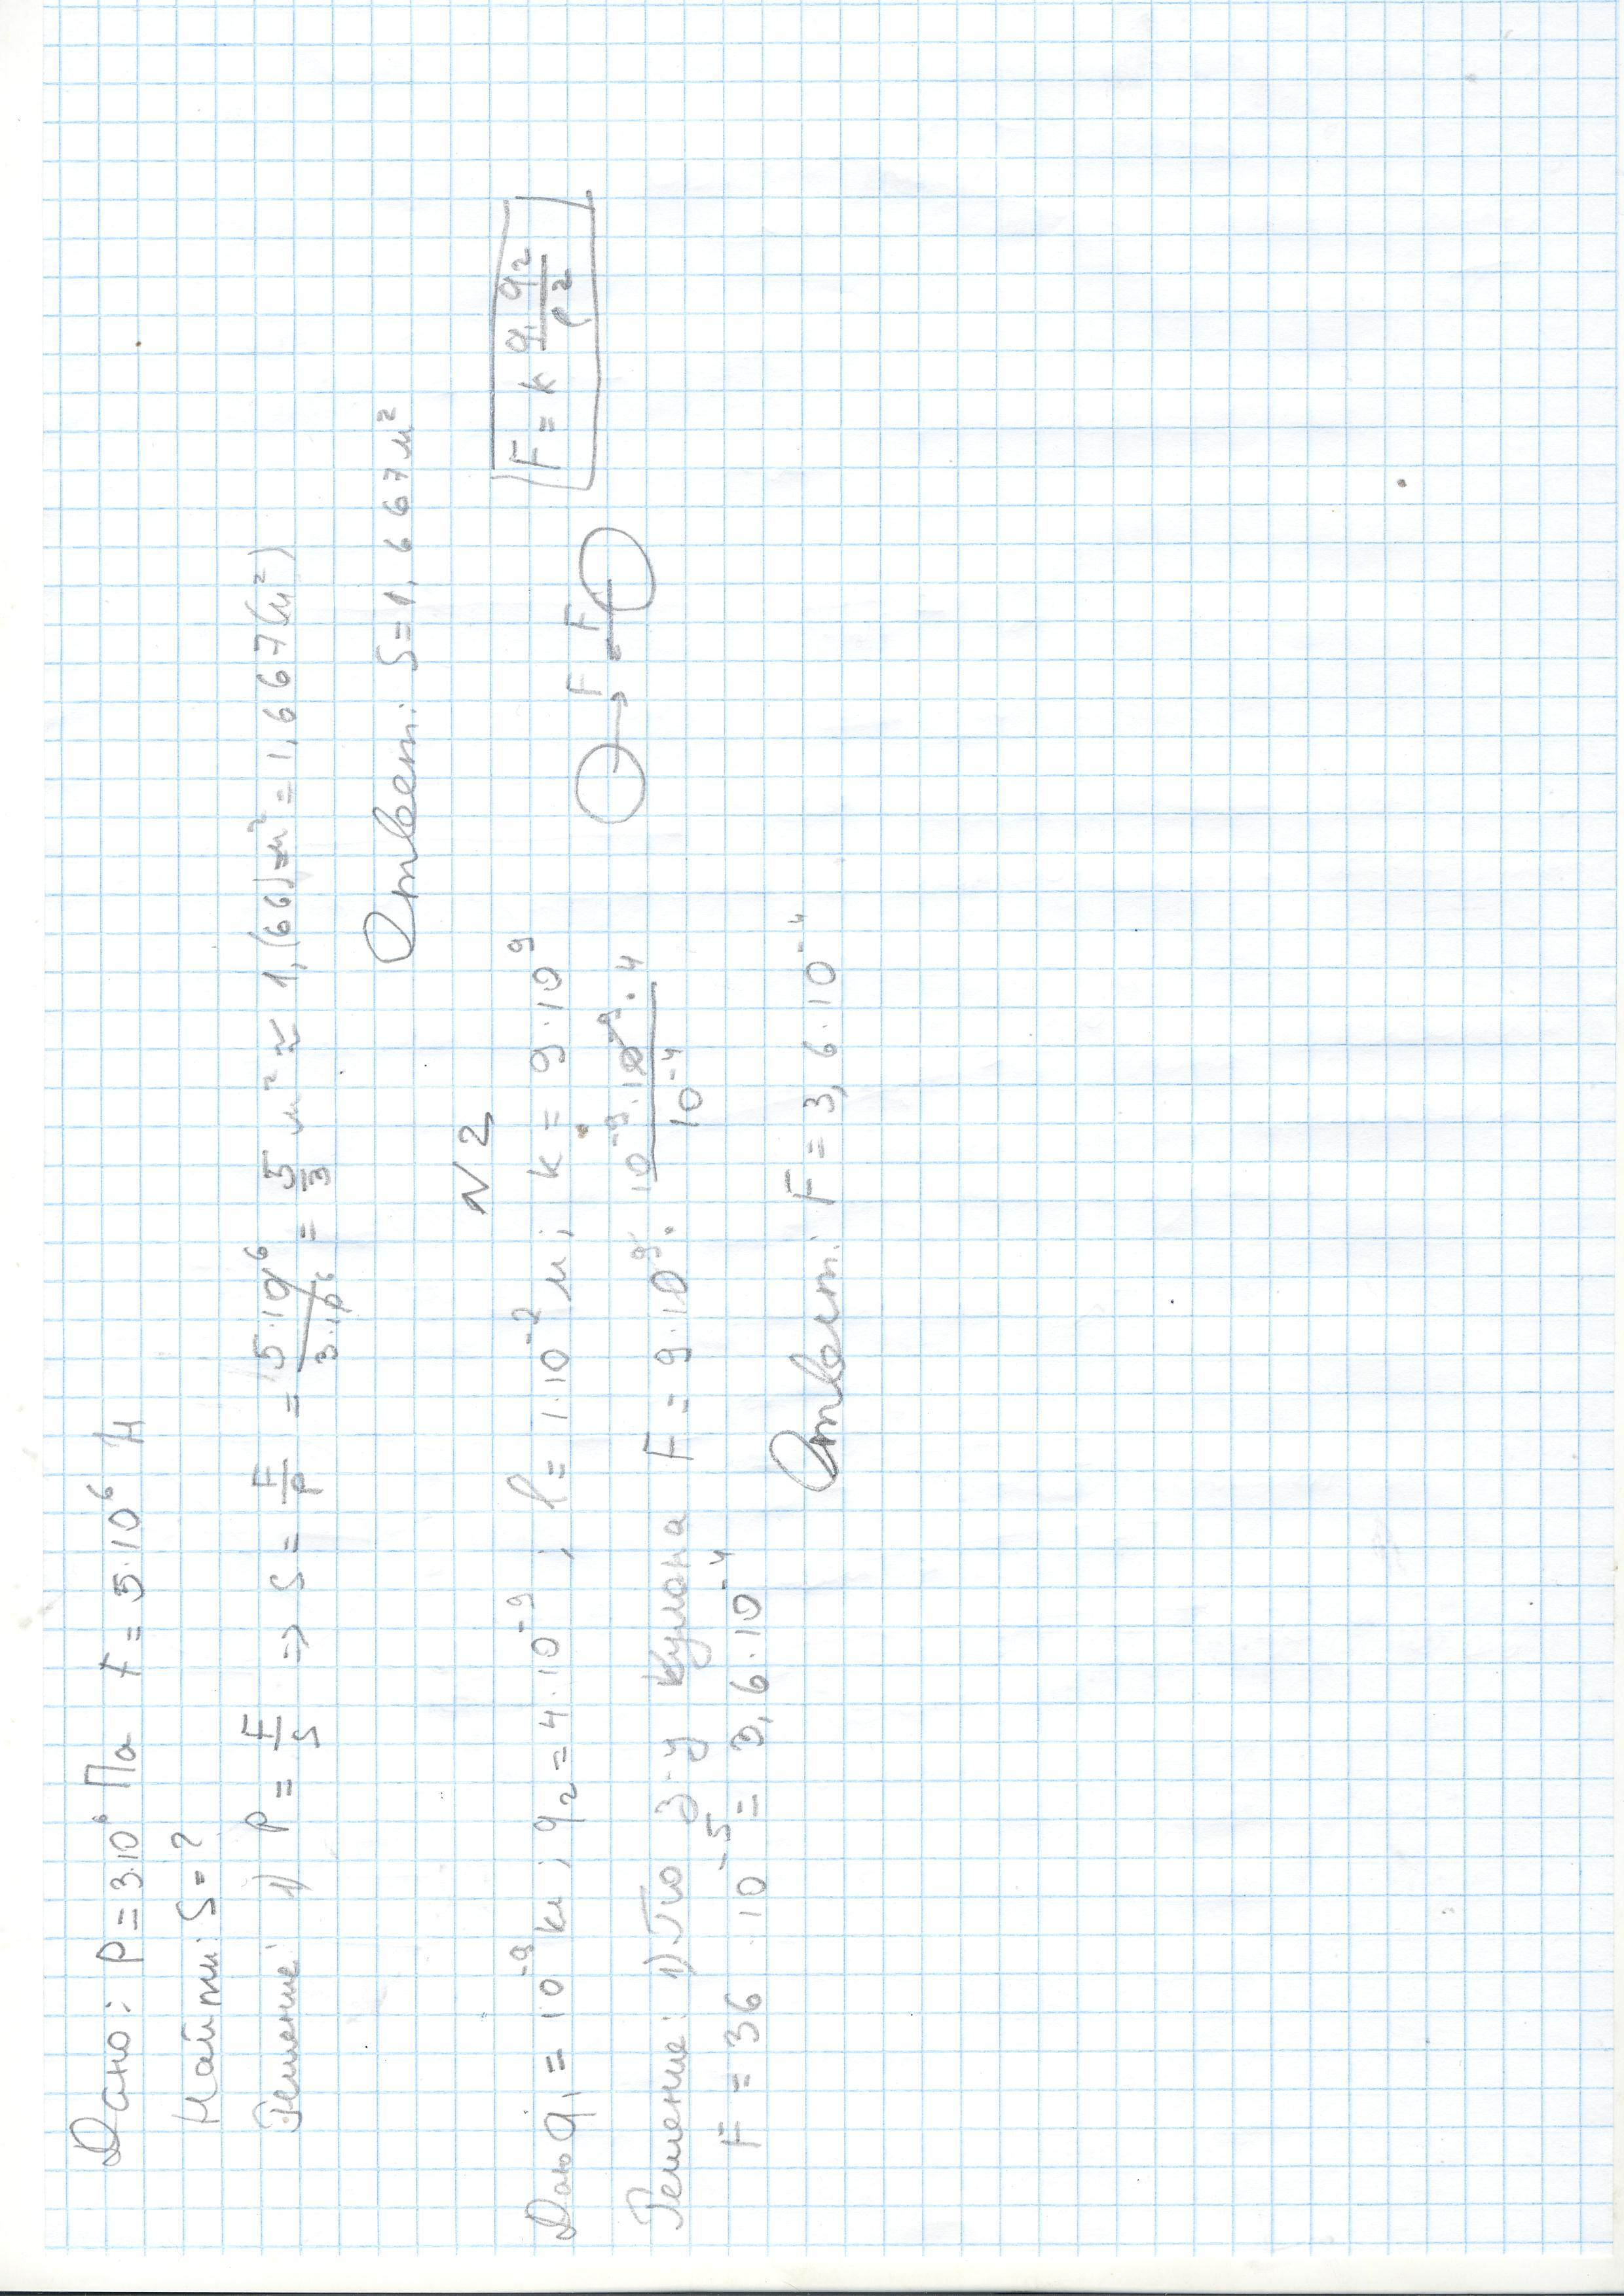 Дано: P = 3·10⁶ Па F = 5·10⁶ Н
Найти: S = ?
Решение: 1) P = F/S => S = F/P = 5·10⁶/3·10⁶ = 5/3 м² ≈ 1,(66) м² = 1,667 (м²)
Ответ: S = 1,667 м²
N 2
Дано q₁ = 10⁻⁹ Кл; q₂ = 4·10⁻⁹; l = 1·10⁻² м; k = 9·10⁹
F = k q₁ q₂/l²
Решение: 1) По з-у Кулона F = 9·10⁹ · 10⁻⁹·10⁻⁹·4/10⁻⁴
F F
F = 36·10⁻⁵ = 3,6·10⁻⁴
Ответ: F = 3,6·10⁻⁴